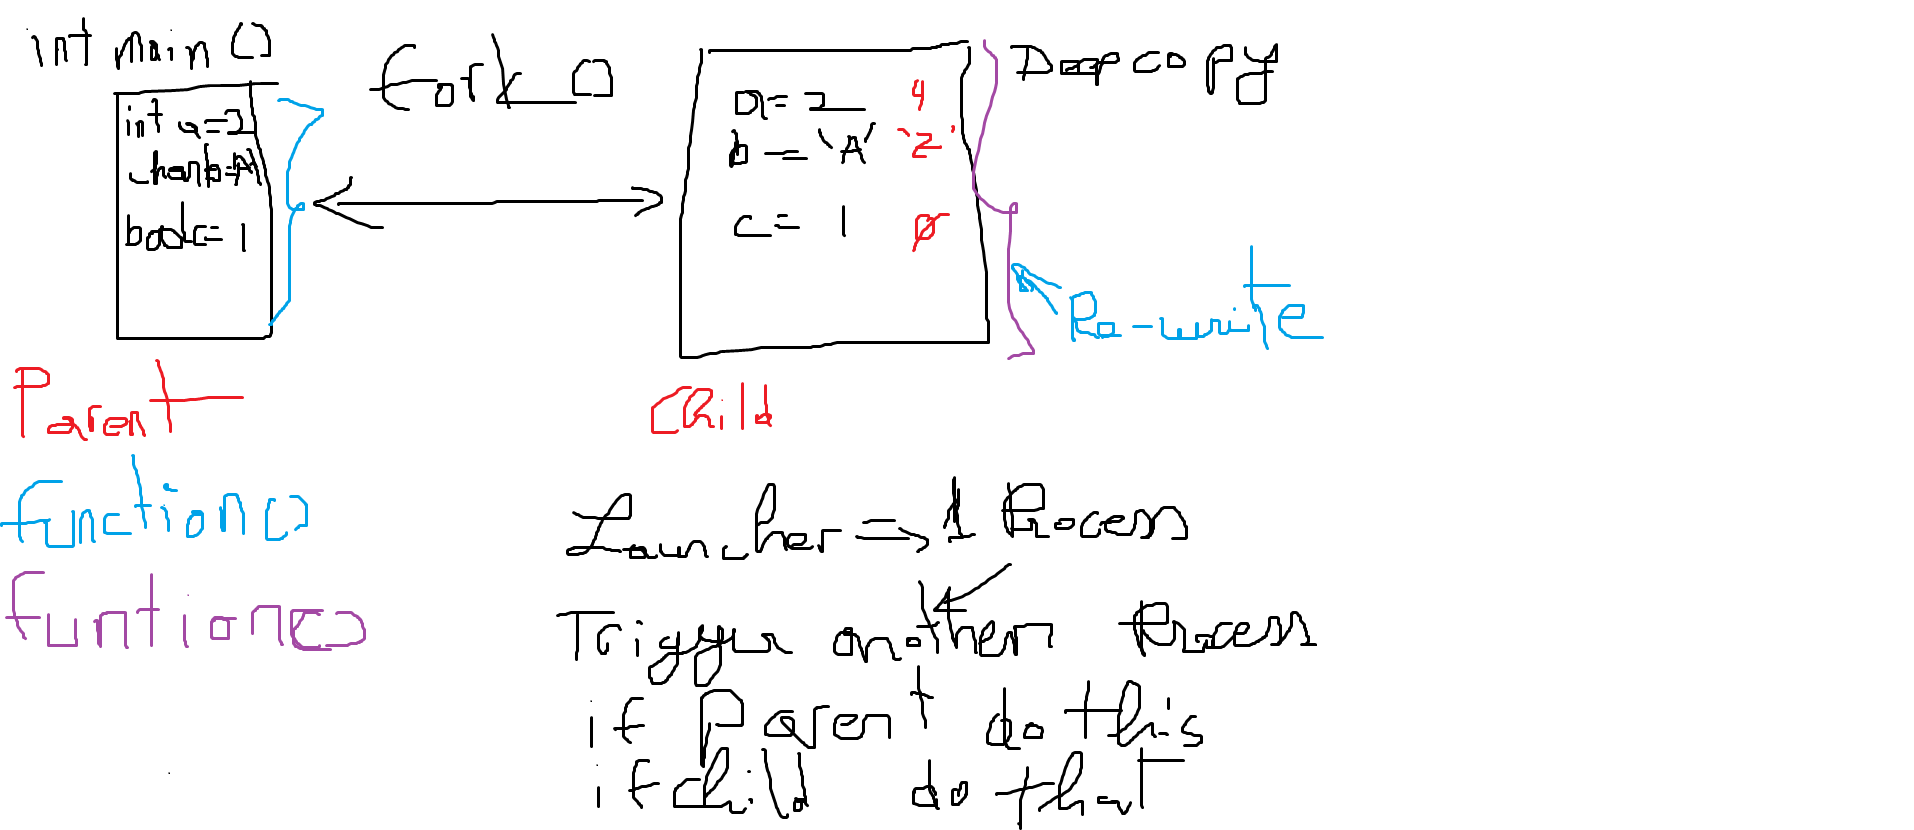 int main ()
fork ()
Deep copy
int a=2
char b=A
bool c=1
a= 2 4
b = 'A' 'Z'
c= 1 0
Re-write
Parent
Child
function()
funtion()
Launcher => 1 Process
Trigger another Process
if Parent do this
if child do that